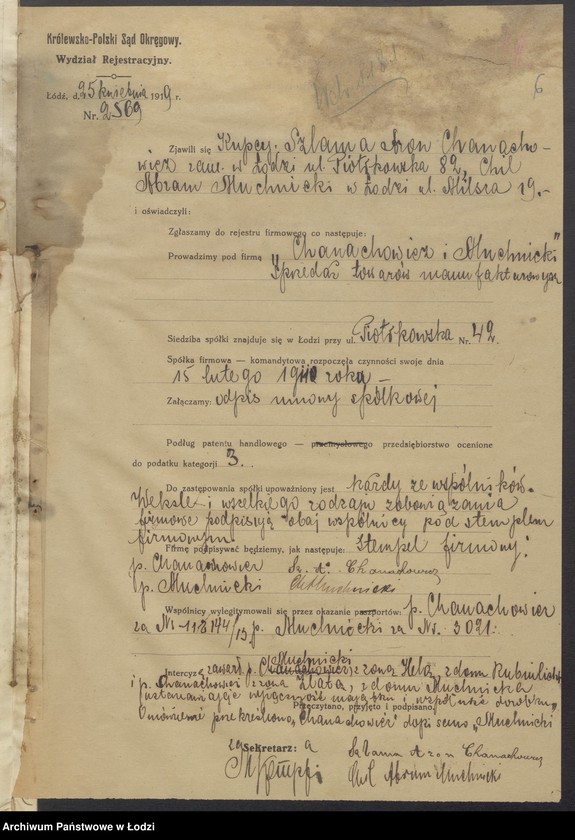 Królewsko-Polski Sąd Okręgowy.
Wydział Rejestracyjny.
6
Łódź, d. 25 kwietnia 1919 r.
Nr. 2569
Zjawili się Kupcy: Szlama Aron Chanacho-
wicz zam. w Łodzi ul. Piotrkowska 82, Chil
Abram Muchnicki w Łodzi ul. Milsza 19.-
i oświadczyli:
Zgłaszamy do rejestru firmowego co następuje:
Prowadzimy pod firmą „Chanachowicz i Muchnicki”
Sprzedaż towarów manufakturowych
Siedziba spółki znajduje się w Łodzi przy ul. Piotrkowska Nr. 42.
Spółka firmowa — komandytowa rozpoczęła czynności swoje dnia
15 lutego roku –
Załączamy: odpis umowy spółkowej
Podług patentu handlowego — przemysłowego przedsiębiorstwo ocenione
do podatku kategorji 3.
Do zastępowania spółki upoważniony jest każdy ze wspólników.
Weksle i wszelkiego rodzaju zobowiązania
firmowe podpisują obaj wspólnicy pod stemplem
firmowym
Firmę podpisywać będziemy, jak następuje: Stempel firmowy:
p. Chanachowicz Sz. A. Chanachowicz
p. Muchnicki Ch A Muchnicki
Wspólnicy wylegitymowali się przez okazanie paszportów: p. Chanachowicz
za Nr 118144/13 p. Muchnicki za Nr. 3091.
Muchnicki
Intercyzę zawarł p. Chanachowicz z żoną Helą, z domu
i p. Chanachowicz z żoną Złatą, z domu Muchnicka
ustanawiające wyłączność majątku i wspólność dorobku
Przeczytano, przyjęto i podpisano.
Omówienie przekreślono „Chanachowicz” dopisano „Muchnicki
za Sekretarz: a
Szlama Aron Chanachowicz
Chil Abram Muchnicki
Archiwum Państwowe w Łodzi